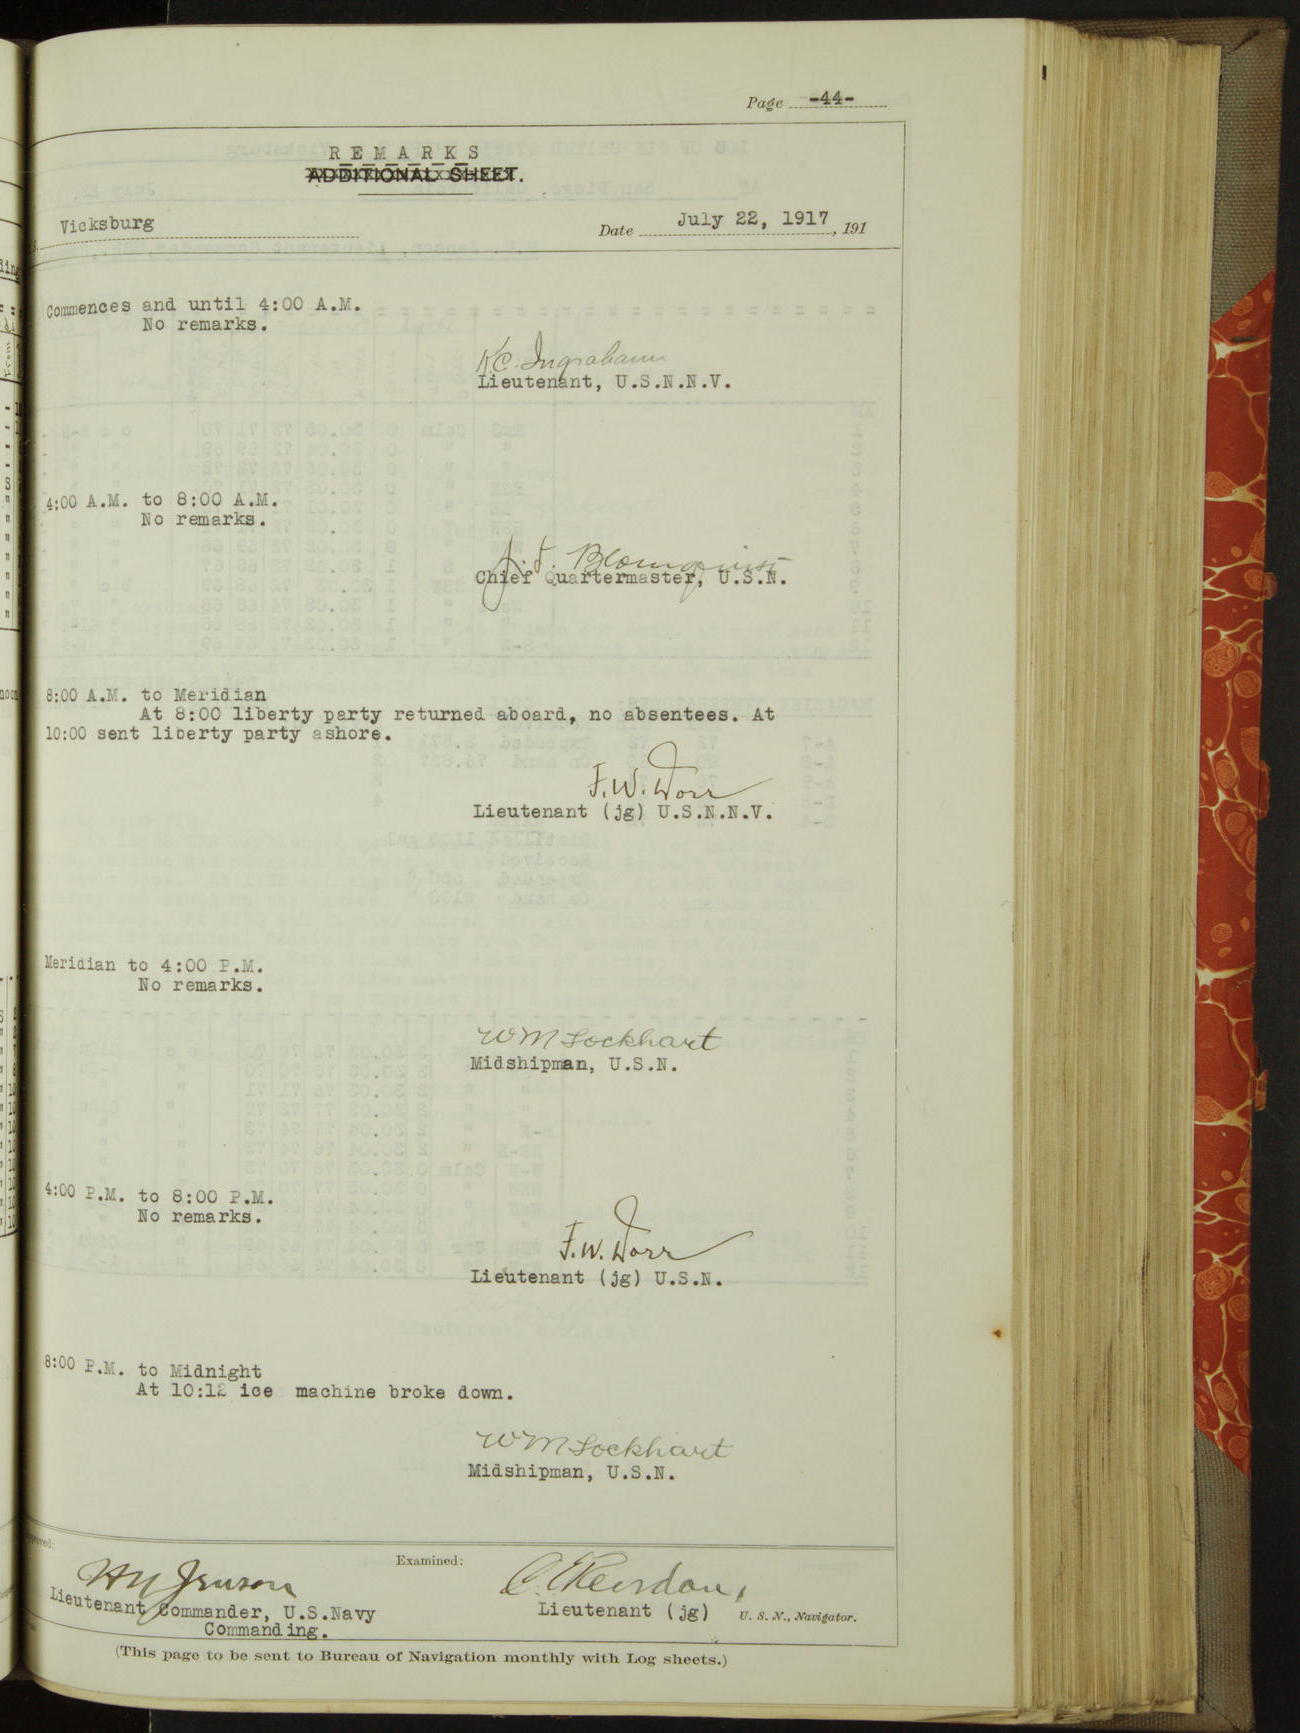 Page -44-
REMARKS
ADDITIONAL SHEET.
Vicksburg
Date July 22, 1917, 191
Commences and until 4:00 A.M.
No remarks.
K C. Ingraham
Lieutenant, U.S.N.N.V.
4:00 A.M. to 8:00 A.M.
No remarks.
J. F. Blomquist
Chief Quartermaster, U.S.N.
8:00 A.M. to Meridian
At 8:00 liberty party returned aboard, no absentees. At
10:00 sent liberty party ashore.
F. W. Dorr
Lieutenant (jg) U.S.N.N.V.
Meridian to 4:00 P.M.
No remarks.
W M Lockhart
Midshipman, U.S.N.
4:00 P.M. to 8:00 P.M.
No remarks.
F. W. Dorr
Lieutenant (jg) U.S.N.
8:00 P.M. to Midnight
At 10:12 ice machine broke down.
W M Lockhart
Midshipman, U.S.N.
Examined:
Lieutenant Commander, U.S.Navy
Commanding.
Lieutenant (jg) U. S. N., Navigator.
(This page to be sent to Bureau of Navigation monthly with Log sheets.)